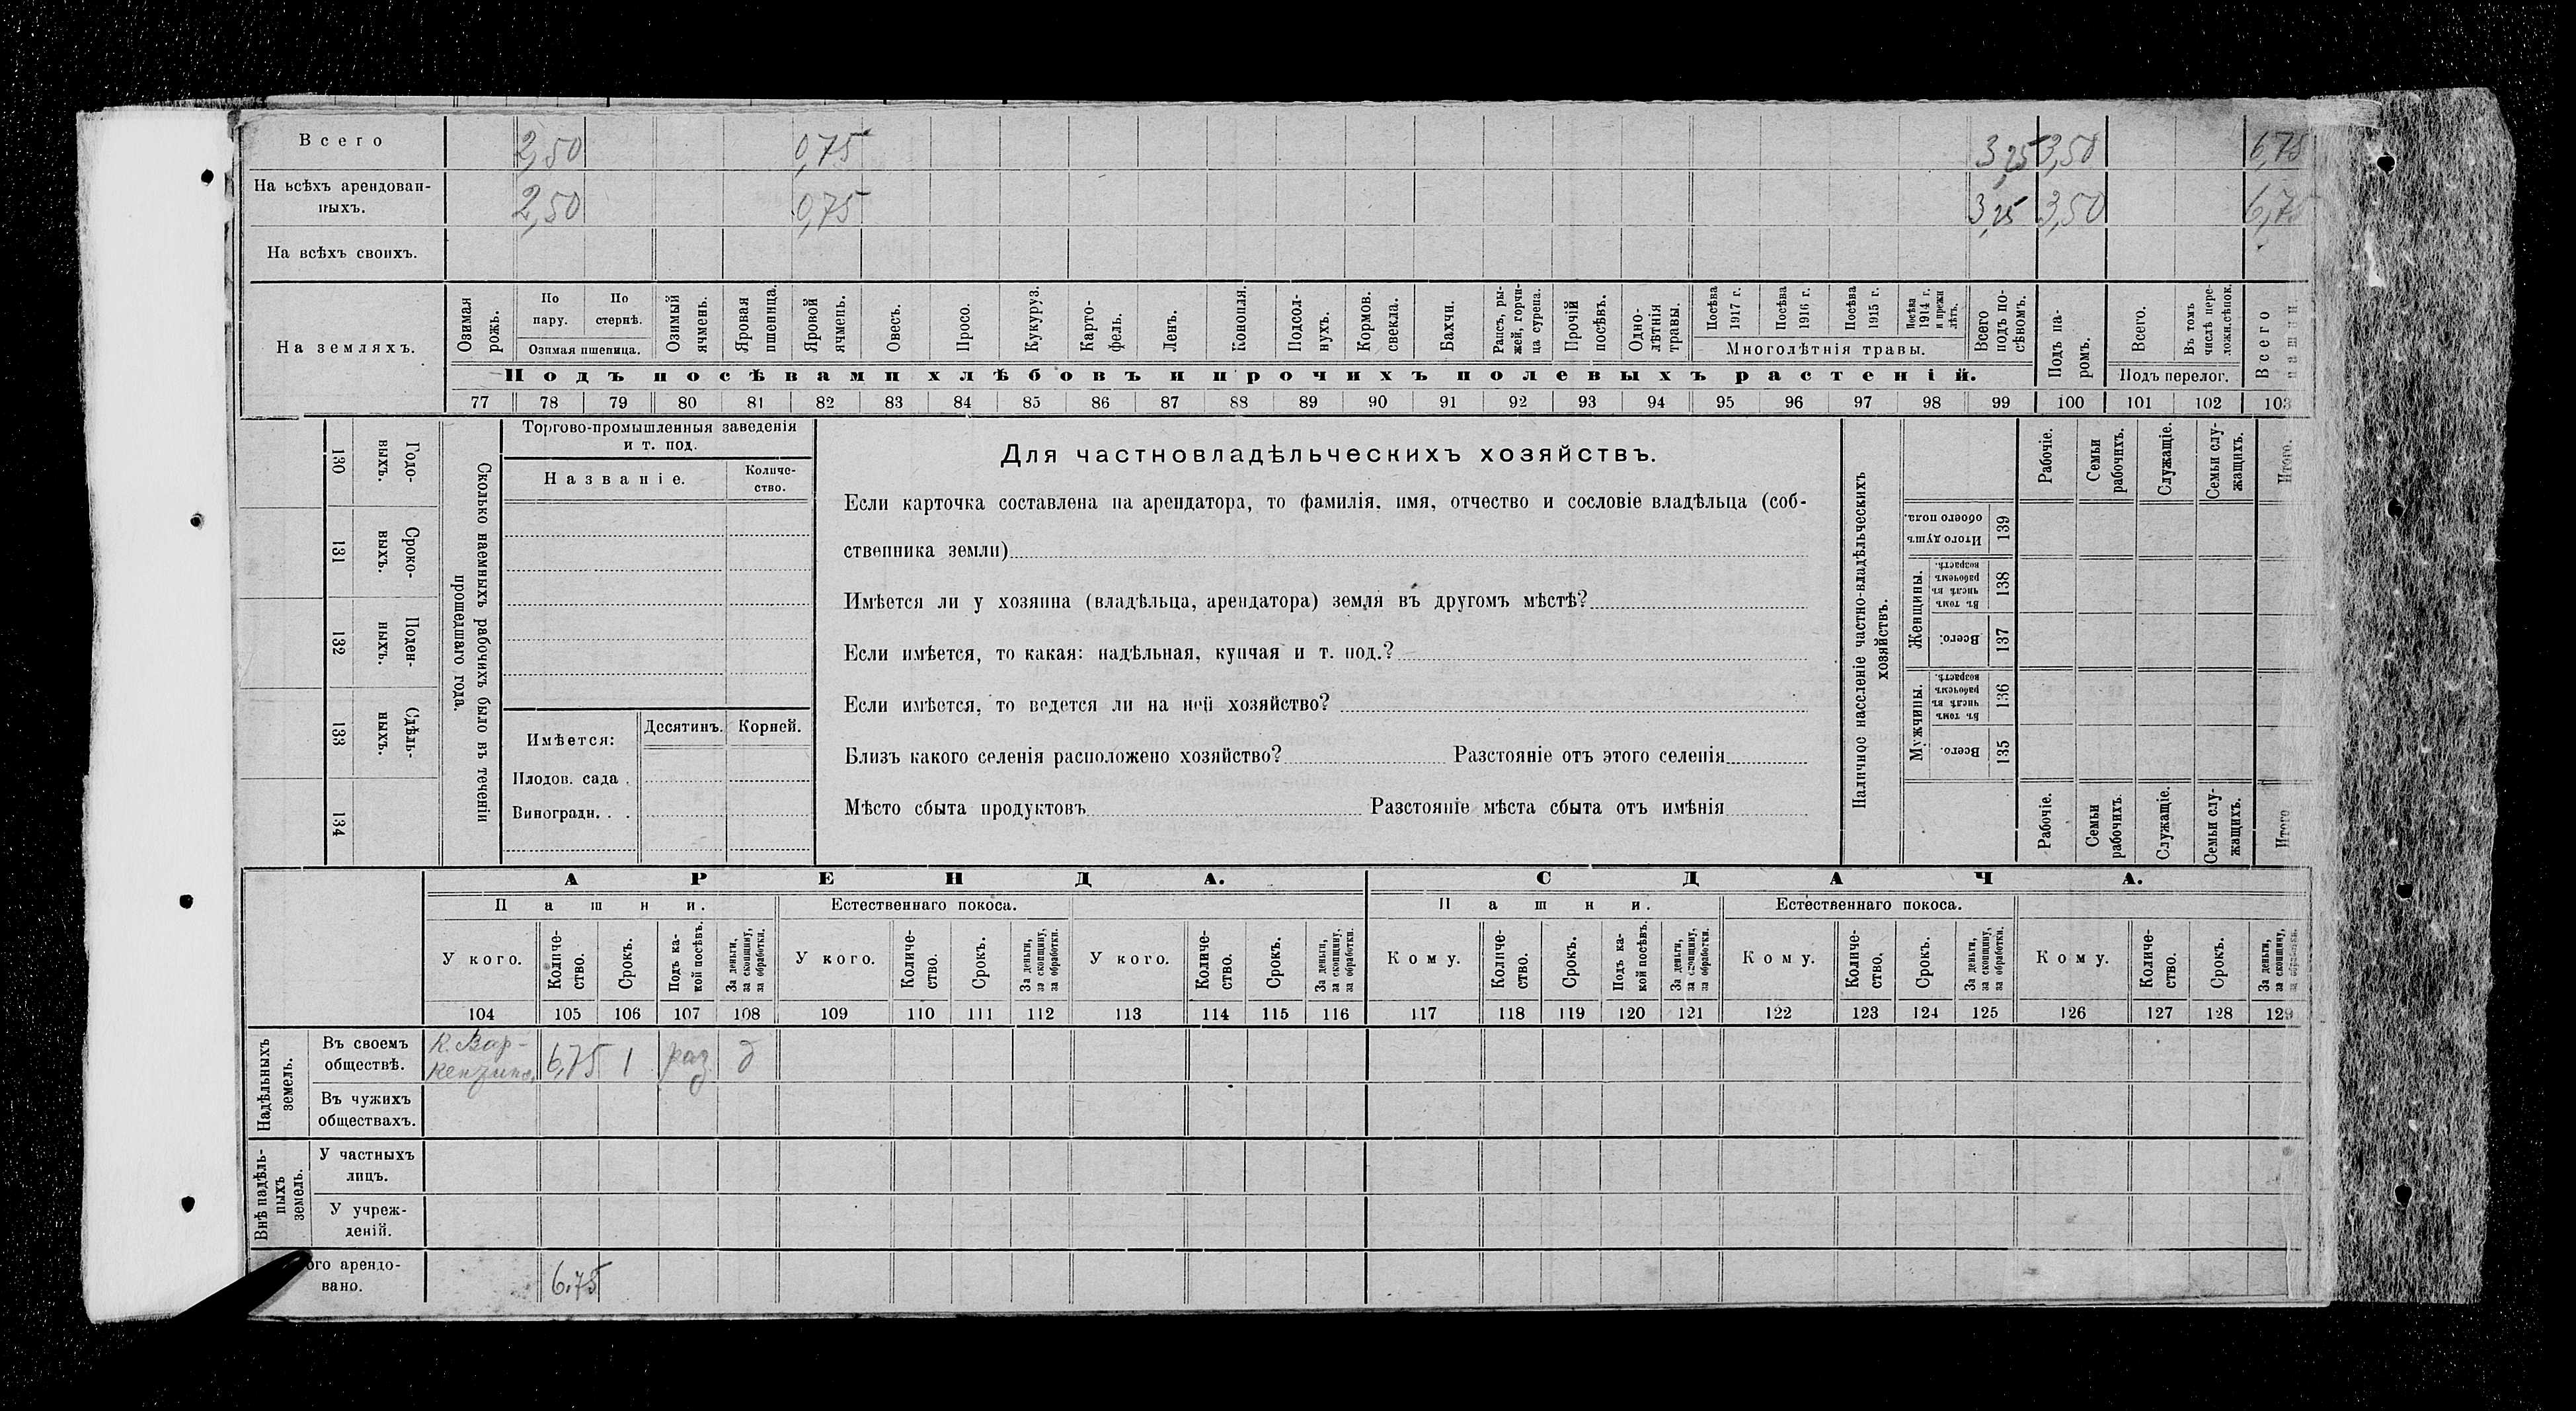 Всего 2,50 0,75 3,25 3,50 6,75
На всѣхъ арендован-
ныхъ. 2,50 0,75 3,25 3,50 6,75
На всѣхъ своихъ.
На земляхъ.
Озимая рожь.
По пару.
По стернѣ.
Озимая пшеница.
Озимый ячмень.
Яровая пшеница.
Яровой ячмень.
Овесъ.
Просо.
Кукуруз.
Карто-
фель.
Ленъ.
Конопля.
Подсол-
нухъ.
Кормов.
свекла.
Бахчи.
Рапсъ, ры-
жей, горчи-
ца сурепа.
Прочій
посѣвъ.
Одно-
лѣтнія
травы.
Посѣва
1917 г.
Посѣва
1916 г.
Посѣва
1915 г.
Посѣва
1914 г.
и прежн
лѣтъ.
Многолѣтнія травы.
Всего
подъ по-
сѣвомъ.
Подъ па-
ромъ.
Всего.
Въ томъ
числѣ пере-
ложн.сѣнок.
Подъ перелог.
Всего
пашни
Подъ посѣвами хлѣбовъ и прочихъ полевыхъ растеній.
77 78 79 80 81 82 83 84 85 86 87 88 89 90 91 92 93 94 95 96 97 98 99 100 101 102 103
130 Годо-
выхъ.
131 Сроко-
выхъ.
132 Поден-
ныхъ.
133 Сдѣль-
ныхъ.
134
Сколько наемныхъ рабочихъ было въ теченіи
прошедшаго года.
Торгово-промышленныя заведенія
и т. под.
Названіе.
Количе-
ство.
Имѣется:
Десятинъ.
Корней.
Плодов. сада .
Виноградн. . .
Для частновладѣльческихъ хозяйствъ.
Если карточка составлена на арендатора, то фамилія, имя, отчество и сословіе владѣльца (соб-
ственника земли)
Имѣется ли у хозяина (владѣльца, арендатора) земля въ другомъ мѣстѣ?
Если имѣется, то какая: надѣльная, купчая и т. под.?
Если имѣется, то ведется ли на ней хозяйство?
Близъ какого селенія расположено хозяйство? Разстояніе отъ этого селенія
Мѣсто сбыта продуктовъ Разстояніе мѣста сбыта отъ имѣнія
Наличное населеніе частно-владѣльческихъ
хозяйствъ.
Рабочіе.
Семьи
рабочихъ.
Служащіе.
Семьи слу-
жащихъ.
Итого.
Итого душъ
обоего пола.
139
Женщины.
Въ томъ
числѣ въ
рабочемъ
возрастѣ.
138
Всего.
137
Мужчины.
Въ томъ
числѣ въ
рабочемъ
возрастѣ.
136
Всего.
135
Рабочіе.
Семьи
рабочихъ.
Служащіе.
Семьи слу-
жащихъ.
Итого
АРЕНДА.
СДАЧА.
Пашни.
Естественнаго покоса.
Пашни.
Естественнаго покоса.
У кого.
Количе-
ство.
Срокъ.
Подъ ка-
кой посѣвъ.
За деньги,
за скопщину,
за обработки.
У кого.
Количе-
ство.
Срокъ.
За деньги,
за скопщину,
за обработки.
У кого.
Количе-
ство.
Срокъ.
За деньги,
за скопщину,
за обработки.
Кому.
Количе-
ство.
Срокъ.
Подъ ка-
кой посѣвъ.
За деньги,
за скопщину,
за обработки.
Кому.
Количе-
ство.
Срокъ.
За деньги,
за скопщину,
за обработки.
Кому.
Количе-
ство.
Срокъ.
За деньги,
за скопщину,
за обработки.
104 105 106 107 108 109 110 111 112 113 114 115 116 117 118 119 120 121 122 123 124 125 126 127 128 129
Надѣльныхъ
земель.
Въ своемъ
обществѣ. 6,75 1 раз д
Въ чужихъ
обществахъ.
Внѣ надѣль-
ныхъ
земель.
У частныхъ
лицъ.
У учреж-
деній.
ого арендо-
вано. 6.75